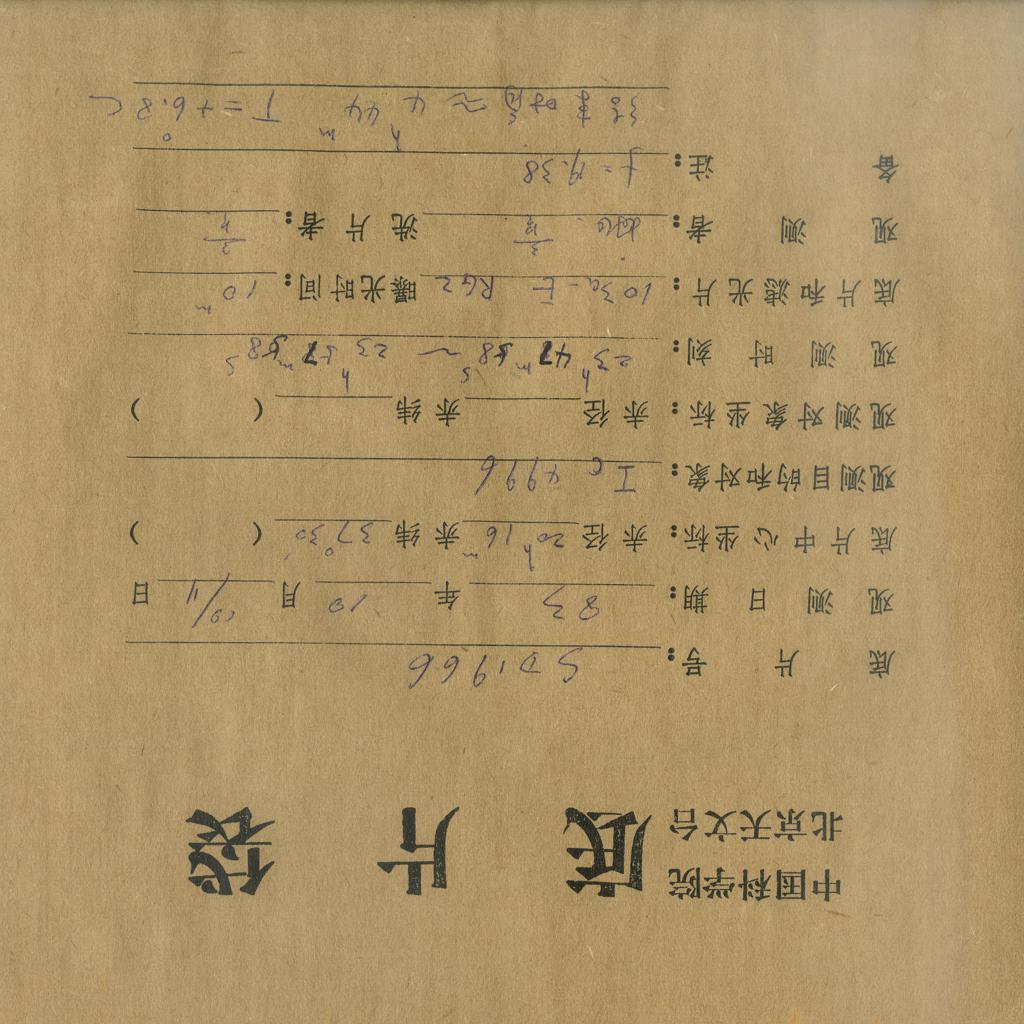 中国科学院
北京天文台
底片袋
底片号: SD1966
观测日期: 83年10月10/11日
底片中心坐标: 赤径 20h16m 赤纬 37°30′ ( )
观测目的和对象: Ic 4996
观测对象坐标: 赤径 赤纬 ( )
观测时刻: 23h47m58s ~ 23h57m58s
底片和滤光片: 103a-E RG2 曝光时间: 10m
观测者: 洗片者:
备注: 9.38
结束时角 ≈ 4h44m T=+6.8°C